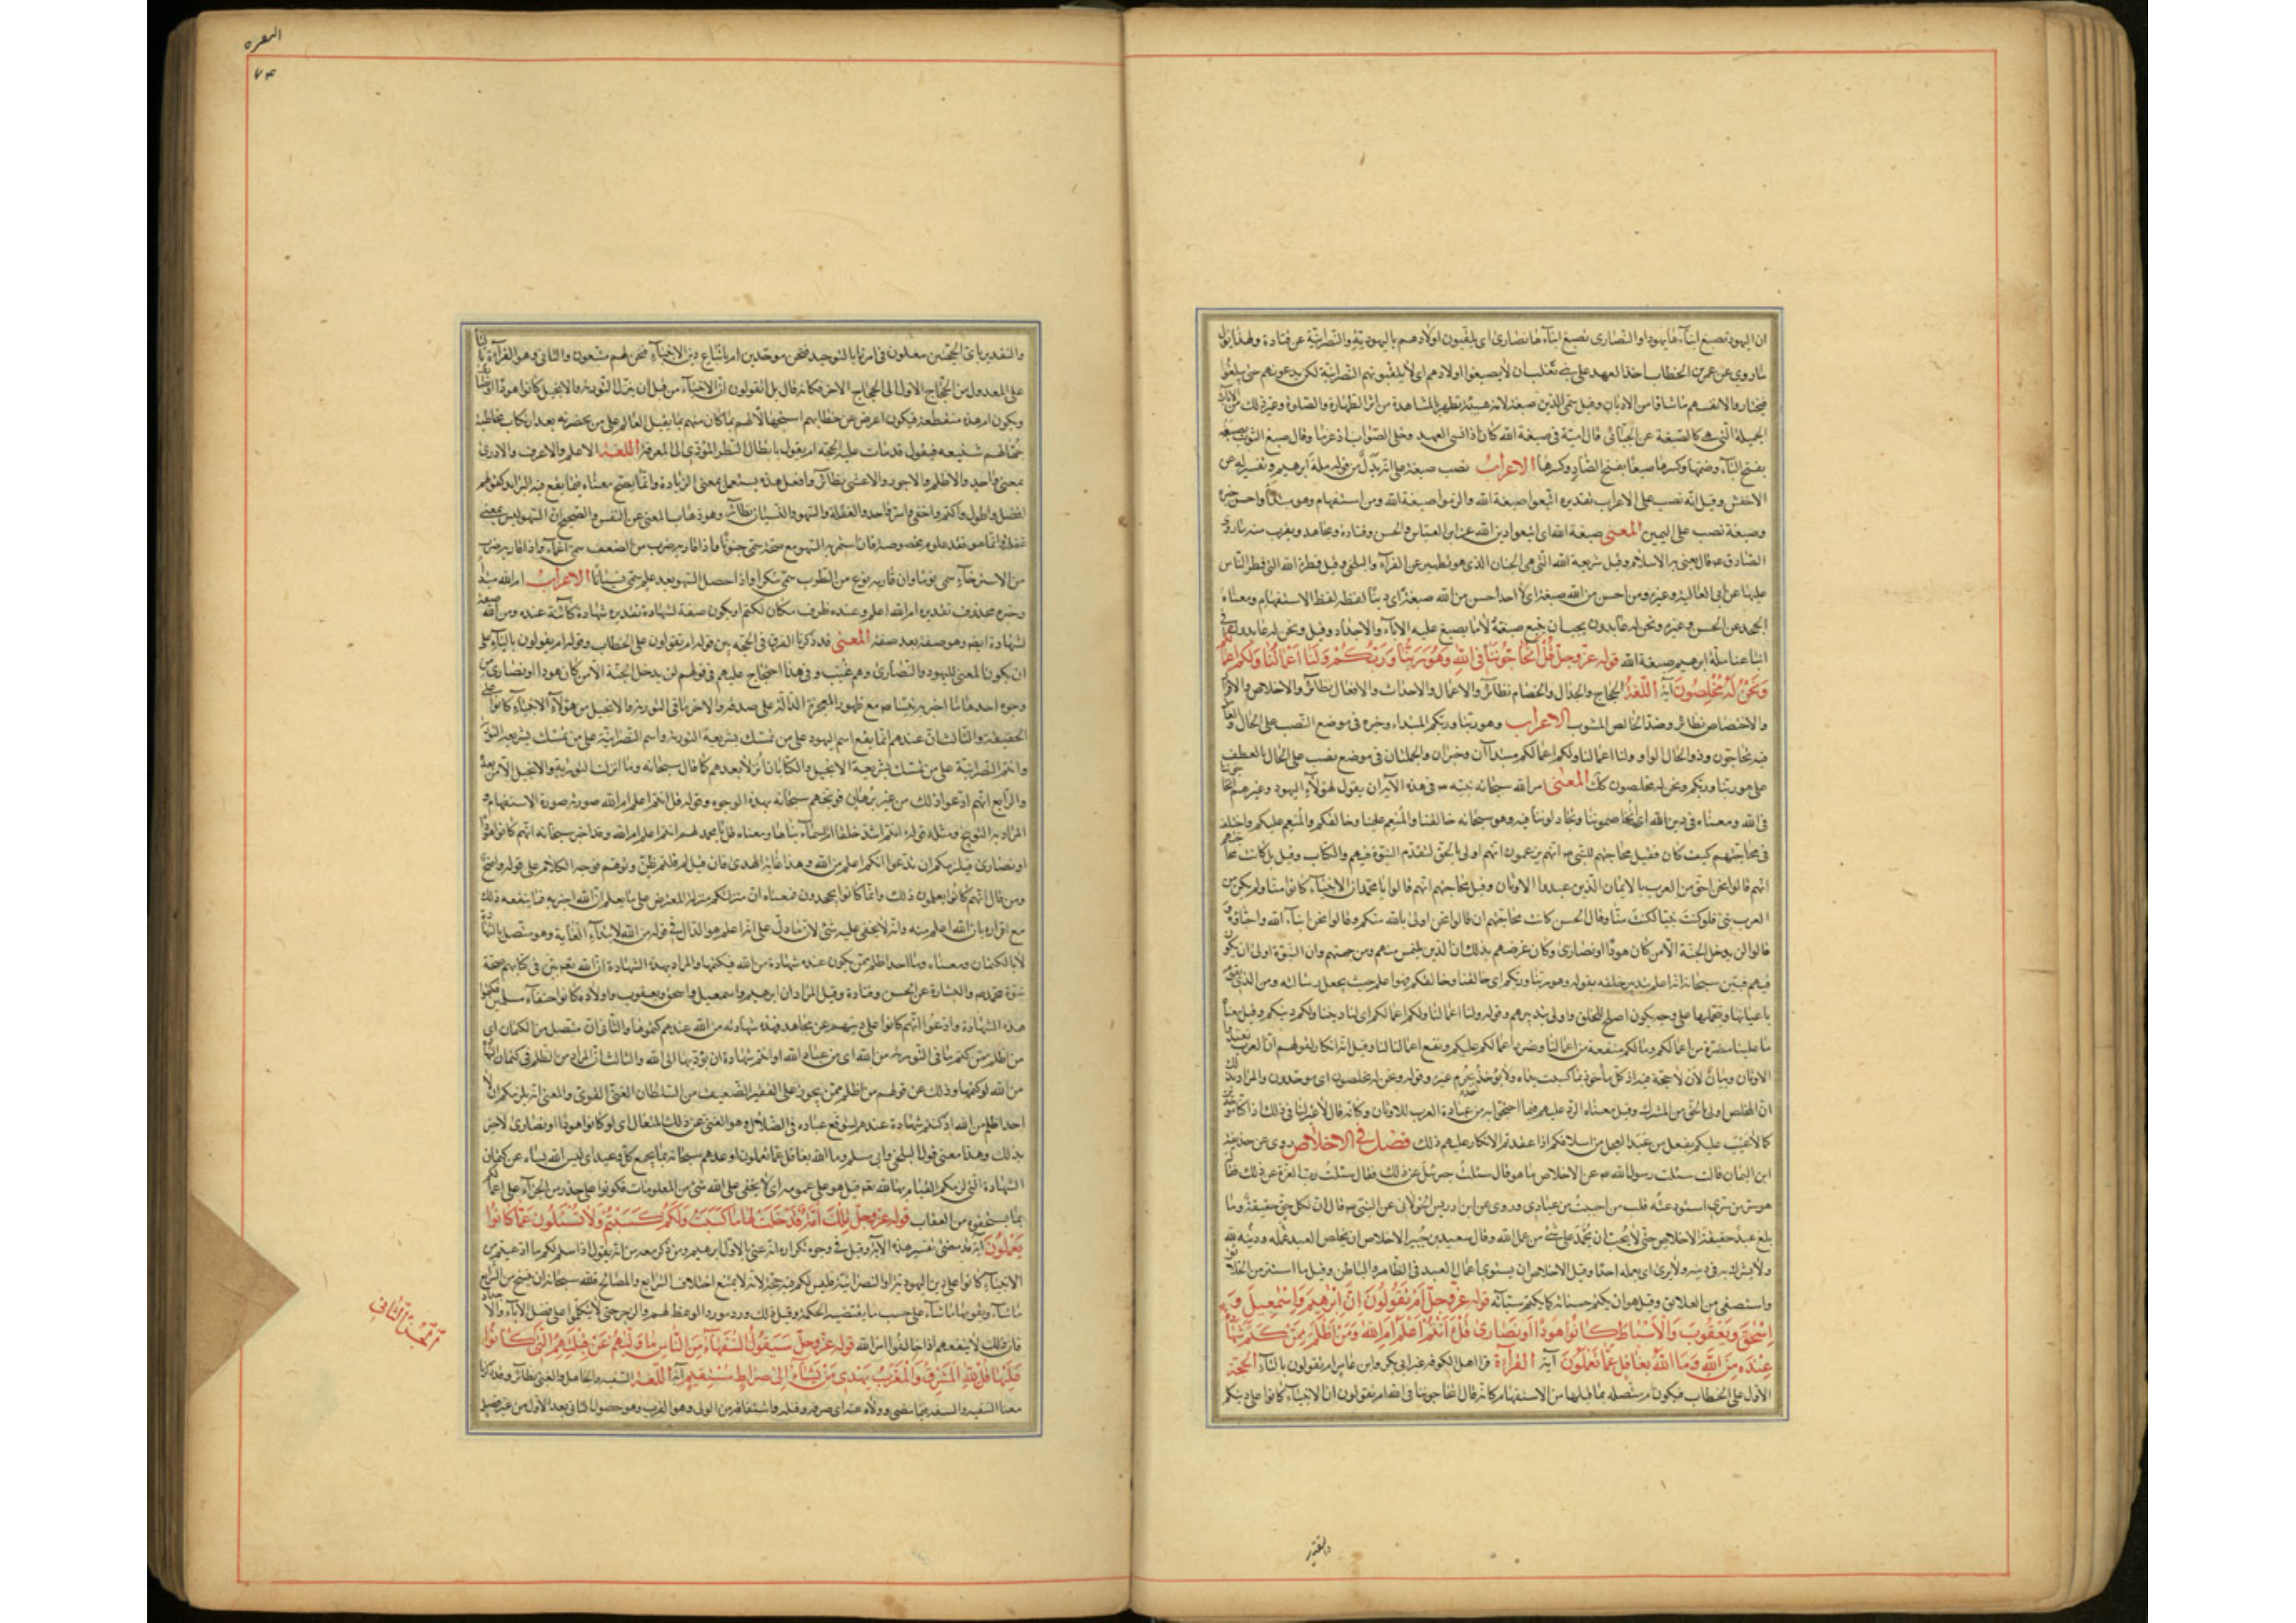 ان اليهود تصبغ ابناءها يهودا والنصارى تصبغ ابناءها نصارى اى يلقبون اولادهم باليهودية والنصرانية عن قتادة ولهذا يؤل
ما روي عن عمر بن الخطاب اخذ العهد على بنى تغلب ان لا يصبغوا اولادهم اى لا يلقبونهم النصرانية لكن يدعونهم حتى يبلغوا
فيختاروا لانفسهم ما شاؤا من الاديان وقيل سمى الدين صبغة لانه هيئة تظهر بالمشاهدة من اثر الطهارة والصلوة وغير ذلك من الآثار
الجميلة التى هى كالصبغة عن الجبائى قال امية فى صبغة الله كان اذ انسى العهد وخلى الصواب اذ عزما وقال صبغ الثوب يصبغه
بفتح الباء وضمها وكسرها صبغا بفتح الصاد وكسرها الاعراب نصب صبغة على انه بدل من قوله ملة ابرهيم وتفسير له عن
الاخفش وقيل انه نصب على الاغراء تقديره اتبعوا صبغة الله والزموا صبغة الله ومن استفهام وهو مبتدأ واحسن خبره
وصبغة نصب على التمييز المعنى صبغة الله اى اتبعوا دين الله عن ابن العباس والحسن وقتادة ومجاهد ويقرب منه ما روى
الصادق ع قال يعنى به الاسلام وقيل شريعة الله التى هى الختان الذى هو تطهير عن الفراء والبلخى وقيل فطرة الله التى فطر الناس
عليها عن ابى العالية وغيره ومن احسن من الله صبغة اى لا احد احسن من الله صبغة اى دينا لفظه لفظ الاستفهام ومعناه
الجحد عن الحسن وغيره ونحن له عابدون يجب ان يتبع صبغة لا ما يصبغ عليه الاباء والاجداد وقيل ونحن له عابدون فى
اتباعنا ملة ابرهيم صبغة الله قوله عز وجل قُلْ اَتُحَاجُّونَنَا فِى اللّهِ وَهُوَ رَبُّنَا وَرَبُّكُمْ وَلَنَا اَعْمَالُنَا وَلَكُمْ اَعْمَالُكُمْ
وَنَحْنُ لَهُ مُخْلِصُونَ آية اللغة الحجاج والجدال والخصام نظائر والاعمال والاحداث والافعال نظائر والاخلاص والافراد
والاختصاص نظائر وضد الخالص المشوب الاعراب وهو ربنا وربكم المبتداء وخبره فى موضع النصب على الحال والعامل
فيه تحاجون وذو الحال الواو ولنا اعمالنا ولكم اعمالكم مبتدآن وخبران والجملتان فى موضع نصب على الحال بالعطف
على هو ربنا وربكم ونحن له مخلصون كذلك المعنى امر الله سبحانه نبيه ص فى هذه الآية ان يقول لهؤلاء اليهود وغيرهم اتحاجوننا
فى الله ومعناه فى دين الله اى تخاصموننا وتجادلوننا فيه وهو سبحانه خالقنا والمنعم علينا وخالقكم والمنعم عليكم واختلف
فى محاجتهم كيف كان فقيل محاجتهم للنبى ص انهم يزعمون انهم اولى بالحق لتقدم النبوة فيهم والكتاب وقيل بل كانت محاجتهم
انهم قالوا نحن احق من العرب بالايمان الذين عبدوا الاوثان وقيل محاجتهم انهم قالوا يا محمد ان الانبياء كانوا منا ولم يكن من
العرب نبى فلو كنت نبيا لكنت منا وقال الحسن كانت محاجتهم ان قالوا نحن اولى بالله منكم وقالوا نحن ابناء الله واحباؤه و
قالوا لن يدخل الجنة الا من كان هودا او نصارى وكان غرضهم بذلك ان الدين يلتمس منهم ومن جهتهم وان النبوة اولى ان يكون
فيهم فبين سبحانه انه اعلم بتدبير خلقه بقوله وهو ربنا وربكم اى خالقنا وخالقكم فهو اعلم حيث يجعل رسالته ومن الذى يقوم
باعبائها وتحملها على وجه يكون اصلح للخلق واولى بتدبيرهم وقوله ولنا اعمالنا ولكم اعمالكم اى لنا ديننا ولكم دينكم وقيل معناه
ما علينا مضرة من اعمالكم وما لكم منفعة من اعمالنا وضرر اعمالكم عليكم ونفع اعمالنا لنا وقيل انه انكار لقولهم ان العرب تعبد
الاوثان وبيان لان لا حجة فيه اذ كل مأخوذ بما كسبت يداه ولا يؤخذ بجرم غيره وقوله ونحن له مخلصون اى موحدون والمراد بذلك
ان المخلص اولى بالحق من المشرك وقيل معناه الرد عليهم فيما احتجوا به من عبادة العرب للاوثان وكانه قال لا عيب لنا فى ذلك اذا كنا موحدين
كما لا عيب عليكم بفعل من عبد العجل من اسلافكم اذا اعتقدتم الانكار عليهم ذلك فصل فى الاخلاص روى عن حذيفة
ابن اليمان قالت سئلت رسول الله ص عن الاخلاص ما هو قال سئلت جبرئيل عن ذلك فقال سئلت رب العزة عن ذلك فقال
هو سر من سرى استودعته قلب من احببت من عبادى وروى عن ابن ادريس الخولانى عن النبى ص قال ان لكل حق حقيقة وما
بلغ عبد حقيقة الاخلاص حتى لا يحب ان يحمد على شئ من عمل الله وقال سعيد بن جبير الاخلاص ان يخلص العبد عمله ودينه لله
ولا يشرك به فى دينه ولا يرى اى بعمله احدا وقيل الاخلاص ان يستوى اعمال العبد فى الظاهر والباطن وقيل ما استتر من الخلائق
واستصفى من العلائق وقيل هو ان يكتم حسناته كما يكتم سيئاته قوله عز وجل اَمْ تَقُولُونَ اِنَّ اِبْرٰهِيمَ وَاِسْمٰعِيلَ وَ
اِسْحٰقَ وَيَعْقُوبَ وَالْاَسْبَاطَ كَانُوا هُودًا اَوْ نَصَارٰى قُلْ ءَاَنْتُمْ اَعْلَمُ اَمِ اللّهُ وَمَنْ اَظْلَمُ مِمَّنْ كَتَمَ شَهَادَةً
عِنْدَهُ مِنَ اللّهِ وَمَا اللّهُ بِغَافِلٍ عَمَّا تَعْمَلُونَ آية القراءة قرا اهل الكوفة غير ابى بكر وابن عامر ام تقولون بالتاء الحجة
الاول على الخطاب فيكون ام متصلة بما قبلها من الاستفهام كانه قال اتحاجوننا فى الله ام تقولون ان الانبياء كانوا على دينكم
والتقدير
البقره
٧٤
والتقدير باى الحجتين معلون فى امرنا بالتوحيد فنحن موحدون ام باتباع دين الانبياء فنحن لهم متبعون والثانى وهو القراءة بالياء
على العدول من الحجاج الاول الى الحجاج الاخر فكانه قال بل اتقولون ان الانبياء من قبل ان ينزل التورية والانجيل كانوا هودا او نصارى
ويكون ام هذه منقطعة فيكون اعرض عن خطابهم استجهالا لهم بما كان منهم كما يقبل العالم على من بحضرته بعد ارتكاب مخاطبه
جهالة شنيعة فيقول قد قامت عليه الحجة ام يقول بابطال النظر المؤدى الى المعرفة اللغة الاعلم والاعرف والادرى
بمعنى واحد والاظلم والاجور والاعتى نظائر وافعل هذه يستعمل بمعنى الزيادة وانما يصح معناه فيما يقع فيه التزايد كقولهم
افضل واطول وكتم واخفى واسر واحد والغفلة والسهو والنسيان نظائر وهو ذهاب المعنى عن النفس والصحيح ان السهو ليس بمعنى
من الاسترخاء سمى نوما وان قارنه نوع من الطرب سمى سكرا واذا حصل السهو بعد علم سمى نسيانا الاعراب ام الله مبتدأ
وخبره محذوف تقديره ام الله اعلم وعنده ظرف مكان لكتم او يكون صفة لشهادة تقديره شهادة كائنة عنده ومن الله صفة
لشهادة ايضا وهو صفة بعد صفة المعنى قد ذكرنا الفرق فى الحجة بين قوله ام تقولون على الخطاب وقوله ام يقولون بالياء على
ان يكون المعنى لليهود والنصارى وهم غيب وفى هذا احتجاج عليهم فى قولهم لن يدخل الجنة الا من كان هودا او نصارى من
وجوه احدها ما اخبر به نبينا ص مع ظهور المعجزة الدالة على صدقه والاخر ما فى التورية والانجيل من هؤلاء الانبياء كانوا على
الحنيفية والثالث ان عندهم انما يقع اسم اليهود على من تمسك بشريعة التورية واسم النصرانية على من تمسك بشريعة
والكتابان انزلا بعدهم كما قال سبحانه وما انزلت التورية والانجيل الا من بعده
والرابع انهم ادعوا ذلك من غير برهان فوبخهم سبحانه بهذه الوجوه وقوله قل ءانتم اعلم ام الله صورته صورة الاستفهام و
المراد به التوبيخ ومثله قوله ءانتم اشد خلقا ام السماء بناها ومعناه قل يا محمد لهم ءانتم اعلم ام الله وقد اخبر سبحانه انهم كانوا هودا
او نصارى فيلزمكم ان تدعوا انكم اعلم من الله وهذا غاية الهدى فان قيل لم قلتم ظن وتوهم فوجه الكلام على قوله واضح
ومن قال انهم كانوا يعلمون ذلك وانما كانوا يجحدون فمعناه ان منزلتكم منزلة المعترض على ما يعلم ان الله اخبر به فما ينفعه ذلك
مع اقراره بان الله اعلم منه وانه لا يخفى عليه شئ
لا بالكتمان ومعناه وما احد اظلم ممن يكون عنده شهادة من الله فيكتمها والمراد بهذه الشهادة ان الله تعالى بين فى كتابهم صحة
نبوة محمد ص والبشارة عن الحسن وقتادة وقيل المراد ان ابرهيم واسمعيل واسحق ويعقوب واولاده كانوا حنفاء مسلمين فكتموا
هذه الشهادة وادعوا انهم كانوا على دينهم عن مجاهد فهذه شهادته من الله عندهم كتموها والثانى ان متصل من الكتمان اى
من اظلم ممن كتم ما فى التورية من الله اى من عباد الله او كتم شهادة ان يؤديها الى الله والثالث ان المراد من اظلم فى كتمان الشهادة
من الله لو كتمها وذلك عن قولهم من اظلم ممن يجور على الفقير الضعيف من السلطان الغنى القوى والمعنى انه يلزمكم ان لا
احد اظلم من الله اذ كتم شهادة عنده ليوقع عباده فى الضلال وهو الغنى عن ذلك المتعال اى لو كانوا هودا او نصارى لاخبر
بذلك وهذا معنى قول البلخى وابى مسلم وما الله بغافل عما تعملون اوعدهم سبحانه بما يجمع كل وعيد اى ليس الله بساه عن كتمان
الشهادة التى لزمكم القيام بها لله تعالى قيل هو على عمومه اى لا يخفى على الله شئ من المعلومات فكونوا على حذر من الجزاء على اعمالكم
بما يستحقونه من العقاب قوله عز وجل تِلْكَ اُمَّةٌ قَدْ خَلَتْ لَهَا مَا كَسَبَتْ وَلَكُمْ مَا كَسَبْتُمْ وَلَا تُسْئَلُونَ عَمَّا كَانُوا
يَعْمَلُونَ آية قد مضى تفسير هذه الآية وقيل فى وجوه تكراره انه عنى بالاول ابرهيم ومن ذكر معه من انه يقول اذا سلم لكم ما ادعيتم من
الانبياء كانوا على دين اليهودية او النصرانية فليس لكم فيه حجة لانه لا يمتنع اختلاف الشرايع والمصالح فلله سبحانه ان ينسخ من الشرايع
ما شاء ويقر منها ما شاء على حسب ما يقتضيه الحكمة وقيل ذلك ورد مورد الوعظ لهم والزجر حتى لا يتكلموا على فضل الاباء والاجداد
فان ذلك لا ينفعهم اذا خالفوا امر الله قوله عز وجل سَيَقُولُ السُّفَهَاءُ مِنَ النَّاسِ مَا وَلّٰيهُمْ عَنْ قِبْلَتِهِمُ الَّتِى كَانُوا
عَلَيْهَا قُلْ لِلّهِ الْمَشْرِقُ وَالْمَغْرِبُ يَهْدِى مَنْ يَشَاءُ اِلٰى صِرَاطٍ مُسْتَقِيمٍ آية اللغة السفيه والجاهل والغبى نظائر وقد ذكرنا
معنا السفيه والسفه فيما مضى وولاه عنه اى صرفه وفتله واشتقاقه من الولى وهو القرب وهو حصول الثانى بعد الاول من غير فصل